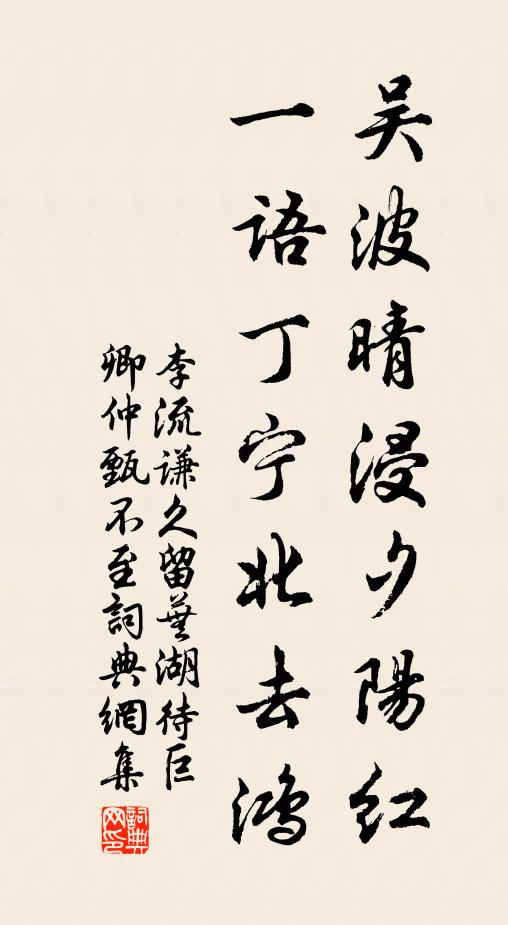 吴波晴浸夕陽红
一语丁宁北去鸿
李流谦久留蕪湖待巨
卿仲甄不至詞典網集
詞典网印